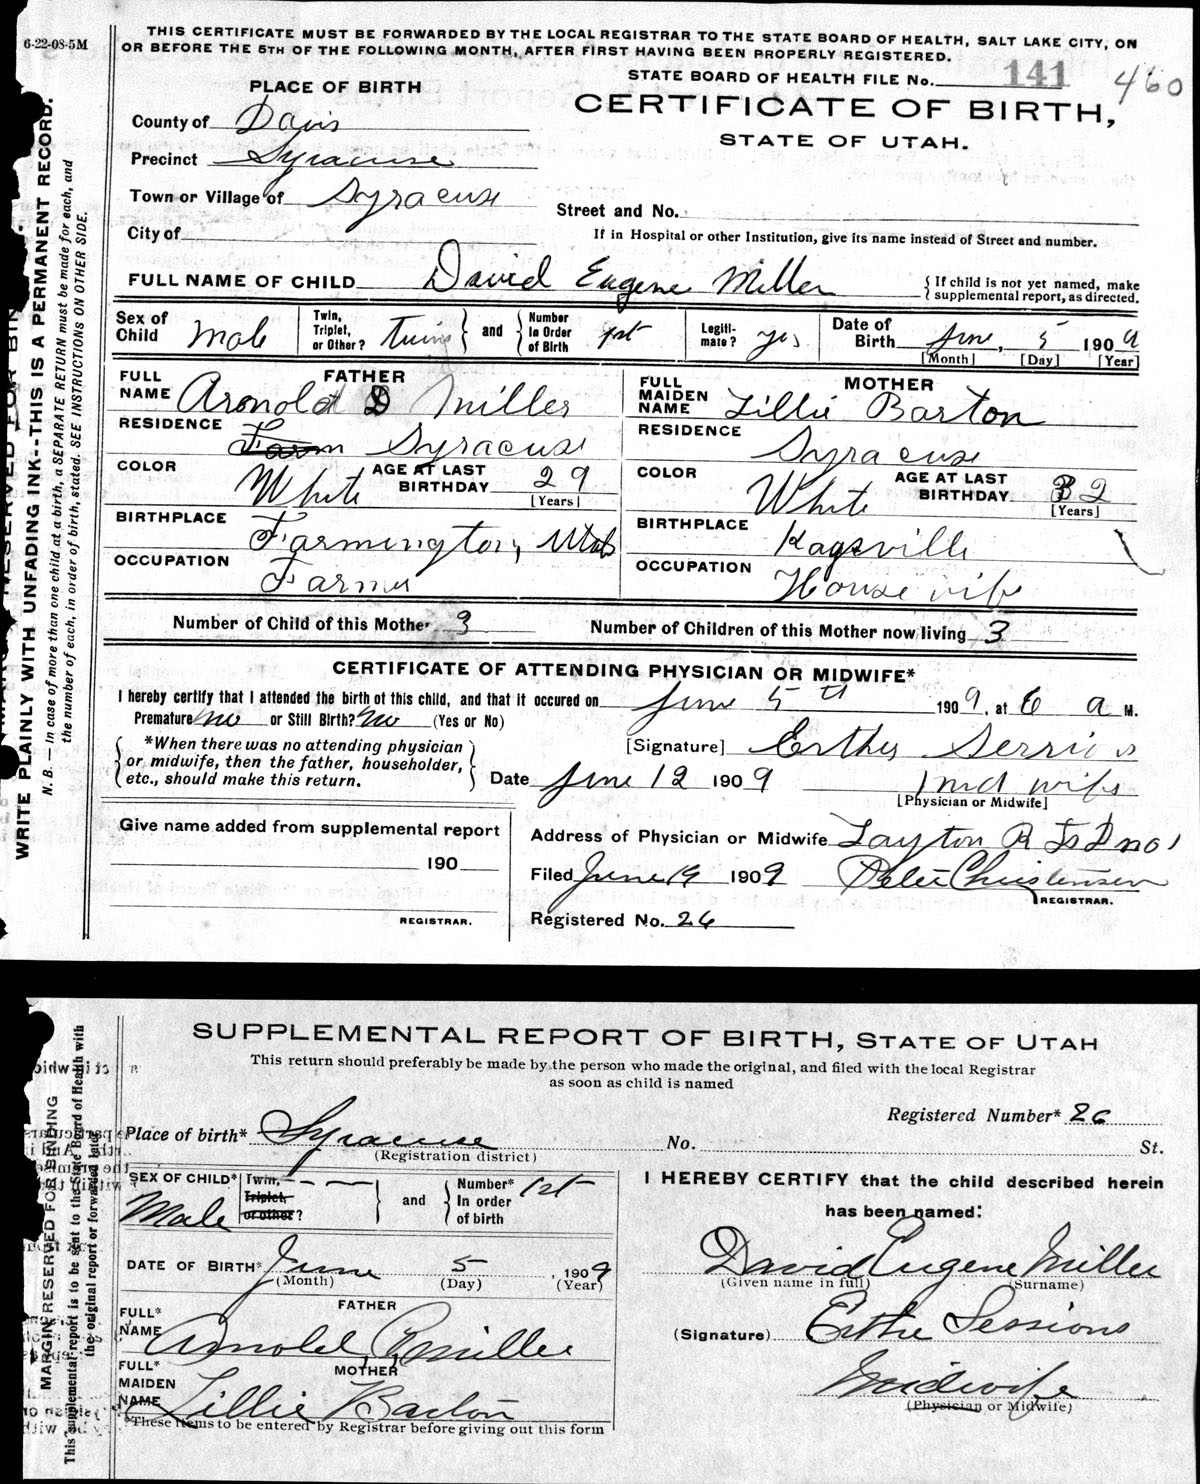 6-22-08-5M
THIS CERTIFICATE MUST BE FORWARDED BY THE LOCAL REGISTRAR TO THE STATE BOARD OF HEALTH, SALT LAKE CITY, ON
OR BEFORE THE 5TH OF THE FOLLOWING MONTH, AFTER FIRST HAVING BEEN PROPERLY REGISTERED.
STATE BOARD OF HEALTH FILE No. 141 460
PLACE OF BIRTH
CERTIFICATE OF BIRTH,
STATE OF UTAH.
County of Davis
Precinct Syracuse
Town or Village of Syracuse
Street and No.
City of
If in Hospital or other Institution, give its name instead of Street and number.
FULL NAME OF CHILD David Eugene Miller
{If child is not yet named, make
supplemental report, as directed.
Sex of Child Male
Twin, Triplet, or Other? Twins } and { Number In Order of Birth 1st
Legiti- mate? yes
Date of Birth June, 5 1909
[Month] [Day] [Year]
FATHER
FULL NAME Arnold D Miller
RESIDENCE Farm Syracuse
COLOR White AGE AT LAST BIRTHDAY 29 [Years]
BIRTHPLACE Farmington, Utah
OCCUPATION Farmer
MOTHER
FULL MAIDEN NAME Lillie Barton
RESIDENCE Syracuse
COLOR White AGE AT LAST BIRTHDAY 32 [Years]
BIRTHPLACE Kaysville
OCCUPATION House wife
Number of Child of this Mother 3 Number of Children of this Mother now living 3
CERTIFICATE OF ATTENDING PHYSICIAN OR MIDWIFE*
I hereby certify that I attended the birth of this child, and that it occured on June 5th 1909, at 6 a M.
Premature no or Still Birth? no (Yes or No)
{*When there was no attending physician
or midwife, then the father, householder,
etc., should make this return.}
[Signature] Esther
Date June 12 1909 mid wife
[Physician or Midwife]
Give name added from supplemental report
190
REGISTRAR.
Address of Physician or Midwife Layton R no 1
Filed June 19 1909 Peter Christensen
REGISTRAR.
Registered No. 26
WRITE PLAINLY WITH UNFADING INK--THIS IS A PERMANENT RECORD.
N. B. — In case of more than one child at a birth, a SEPARATE RETURN must be made for each, and
the number of each, in order of birth, stated. SEE INSTRUCTIONS ON OTHER SIDE.
SUPPLEMENTAL REPORT OF BIRTH, STATE OF UTAH
This return should preferably be made by the person who made the original, and filed with the local Registrar
as soon as child is named
Registered Number* 26
Place of birth* Syracuse No. St.
(Registration district)
SEX OF CHILD* Male
Twin, Triplet, or other? } and { Number* In order of birth 1st
DATE OF BIRTH* June 5, 1909
(Month) (Day) (Year)
FATHER
FULL* NAME Arnold Miller
MOTHER
FULL* MAIDEN NAME Lillie Barton
*These items to be entered by Registrar before giving out this form
I HEREBY CERTIFY that the child described herein
has been named:
David Eugene Miller
(Given name in full) (Surname)
(Signature) Esther Sessions
Midwife
(Physician or Midwife)
MARGIN RESERVED FOR BINDING
This supplemental report is to be sent to the State Board of Health with
the original report or forwarded later.